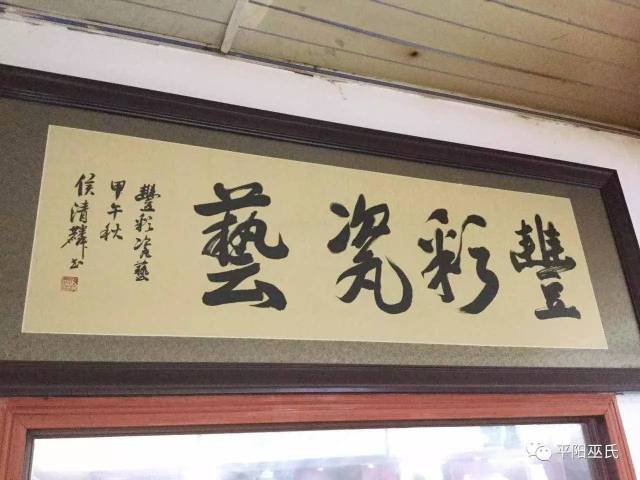 豐彩瓷藝
豐彩瓷藝
甲午秋
侯清辉书
平阳巫氏